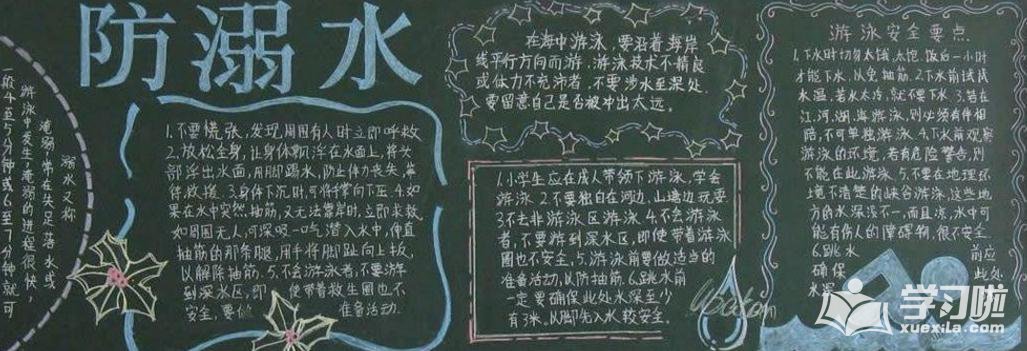 防溺水
溺水又称
淹溺,常在失足落水或
游泳中发生,淹溺的进程很快,
一般4至5分钟或6至7分钟就可
1.不要慌张,发现周围有人时立即呼救
2.放松全身,让身体飘浮在水面上,将头
部浮出水面,用脚踢水,防止体力丧失,等
待救援.3.身体下沉时,可将掌向下压.4.如
果在水中突然抽筋,又无法靠岸时,立即求救.
如周围无人,可深吸一口气潜入水中,伸直
抽筋的那条腿,用手将脚趾向上扳,
以解除抽筋.5.不会游泳者,不要游
到深水区,即使带着救生圈也不
安全,要做 准备活动.
在海中游泳,要沿着海岸
线平行方向而游,游泳技术不精良
或体力不充沛者,不要涉水至深处
要留意自己是否被冲出太远.
1.小学生应在成人带领下游泳,学会
游泳.2.不要独自在河边、山塘边玩耍
3.不去非游泳区游泳.4.不会游泳
者,不要游到深水区,即使带着游泳
圈也不安全.5.游泳前要做适当的
准备活动,以防抽筋.6.跳水前
一定要确保此处水深至少
有3米,以脚先入水较安全.
游泳安全要点
1.下水时切勿太饿、太饱.饭后一小时
才能下水,以免抽筋.2.下水前试试
水温,若水太冷,就不要下水.3.若在
江、河、湖、海游泳,则必须有伴相
陪,不可单独游泳.4.下水前观察
游泳的环境,若有危险警告,则
不能在此游泳.5.不要在地理环
境不清楚的峡谷游泳,这些地
方的水深浅不一,而且凉,水中可
能有伤人的障碍物,很不安全.
6.跳水 前应
确保 此处
水深
学习啦
xuexila.com